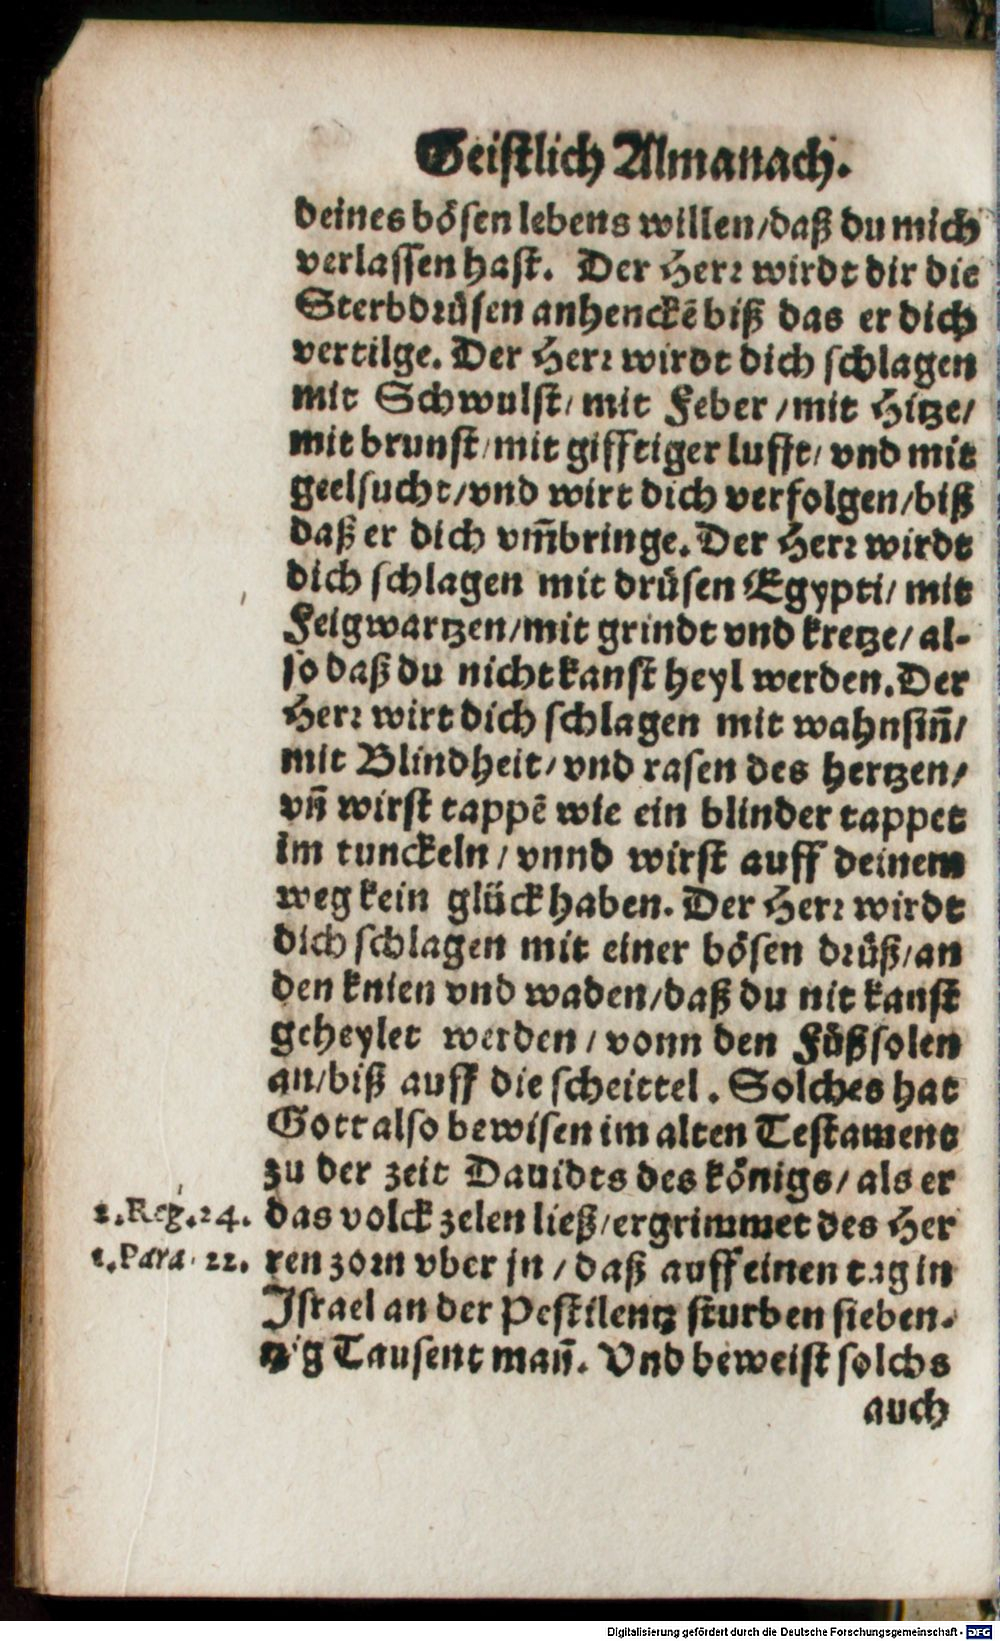 Geistlich Almanach.
deines bösen lebens willen/daß du mich
verlassen hast. Der Herr wirdt dir die
Sterbdrüsen anhenckẽ biß das er dich
vertilge. Der Herr wirdt dich schlagen
mit Schwulst/mit Feber/mit Hitze/
mit brunst/mit gifftiger lufft/vnd mit
geelsucht/vnd wirt dich verfolgen/biß
daß er dich vm̃bringe. Der Herr wirdt
dich schlagen mit drüsen Egypti/mit
Feigwartzen/mit grindt vnd kretze/al-
so daß du nicht kanst heyl werden. Der
Herr wirt dich schlagen mit wahnsiñ/
mit Blindheit/vnd rasen des hertzen/
vñ wirst tappẽ wie ein blinder tappet
im tunckeln/vnnd wirst auff deinem
weg kein glück haben. Der Herr wirdt
dich schlagen mit einer bösen drüß/an
den knien vnd waden/daß du nit kanst
geheylet werden/vonn den Füßsolen
an/biß auff die scheittel. Solches hat
Gott also bewisen im alten Testament
zu der zeit Dauidts des königs/als er
2.Reg.24. das volck zelen ließ/ergrimmet des Her
1.Para.22. ren zorn vber jn/daß auff einen tag in
Israel an der Pestilentz sturben sieben-
tzig Tausent mañ. Vnd beweist solchs
auch
Digitalisierung gefördert durch die Deutsche Forschungsgemeinschaft - DFG